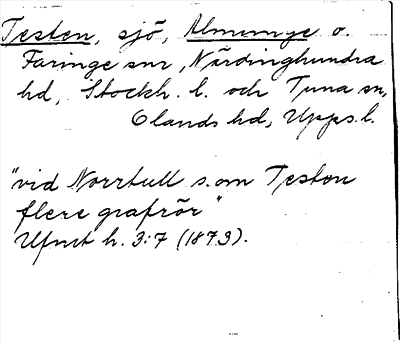 Testen, sjö, Almunge o.
Faringe snr, Närdinghundra
hd, Stockh. l. och Tuna sn,
Olands hd, Upps. l.
"vid Norrtull s.om Testen
flere grafrör"
Ufmt h. 3:7 (1873).